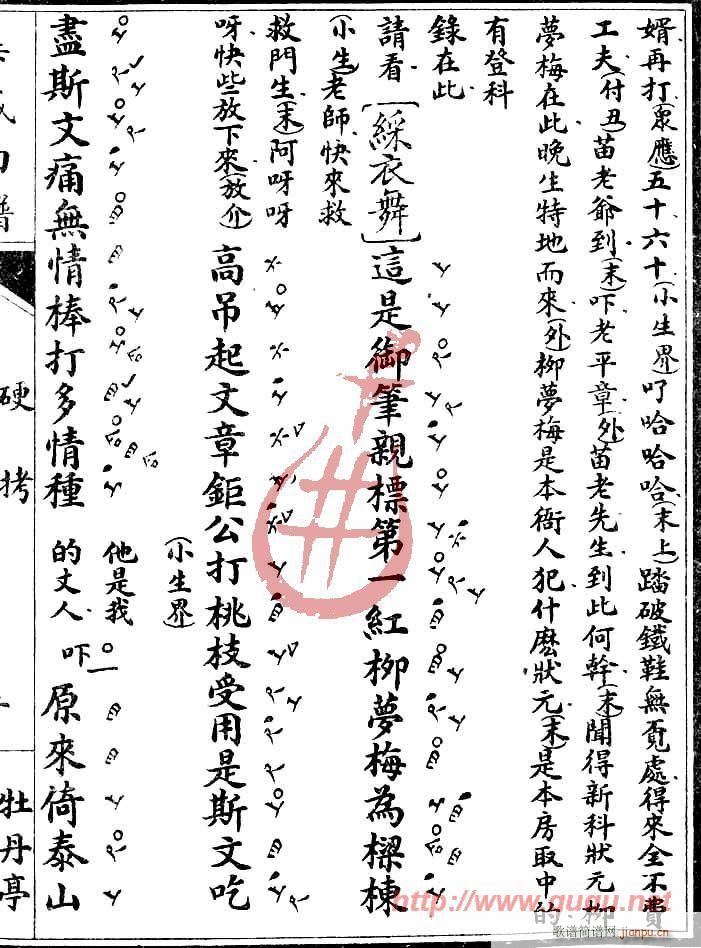 婿再打(衆應)五十六十(小生界)吖哈哈哈(末上)踏破鐵鞋無覓處得來全不費
工夫(付丑)苗老爺到(末)吓老平章(外)苗老先生到此何幹(末)聞得新科狀元柳
夢梅在此晚生特地而來(外)柳夢梅是本衙人犯什麽狀元(末)是本房取中的柳
有登科
錄在此
請看[綵衣舞]這是御筆親標第一紅柳夢梅為樑棟
(小生)老師快來救
救門生(末)阿呀呀
呀快些放下來(放介)高吊起文章鉅公打桃枝受用是斯文吃
(小生界)
盡斯文痛無情棒打多情種
他是我
的丈人吓原來倚泰山
硬拷
牡丹亭
http://www.gugu.net
歌谱简谱网
jianpu.cn